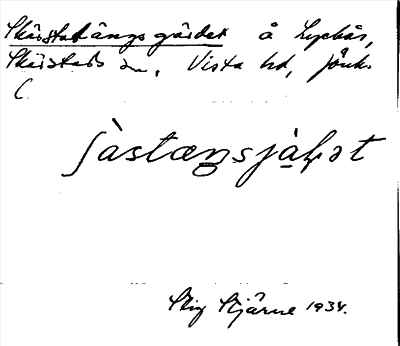 Skärstadängsgärdet å Lyckås,
Skärstads sn, Vista hd, Jönk.
C.
ʃàstæŋsjàḷət
Stig Stjärne 1934.